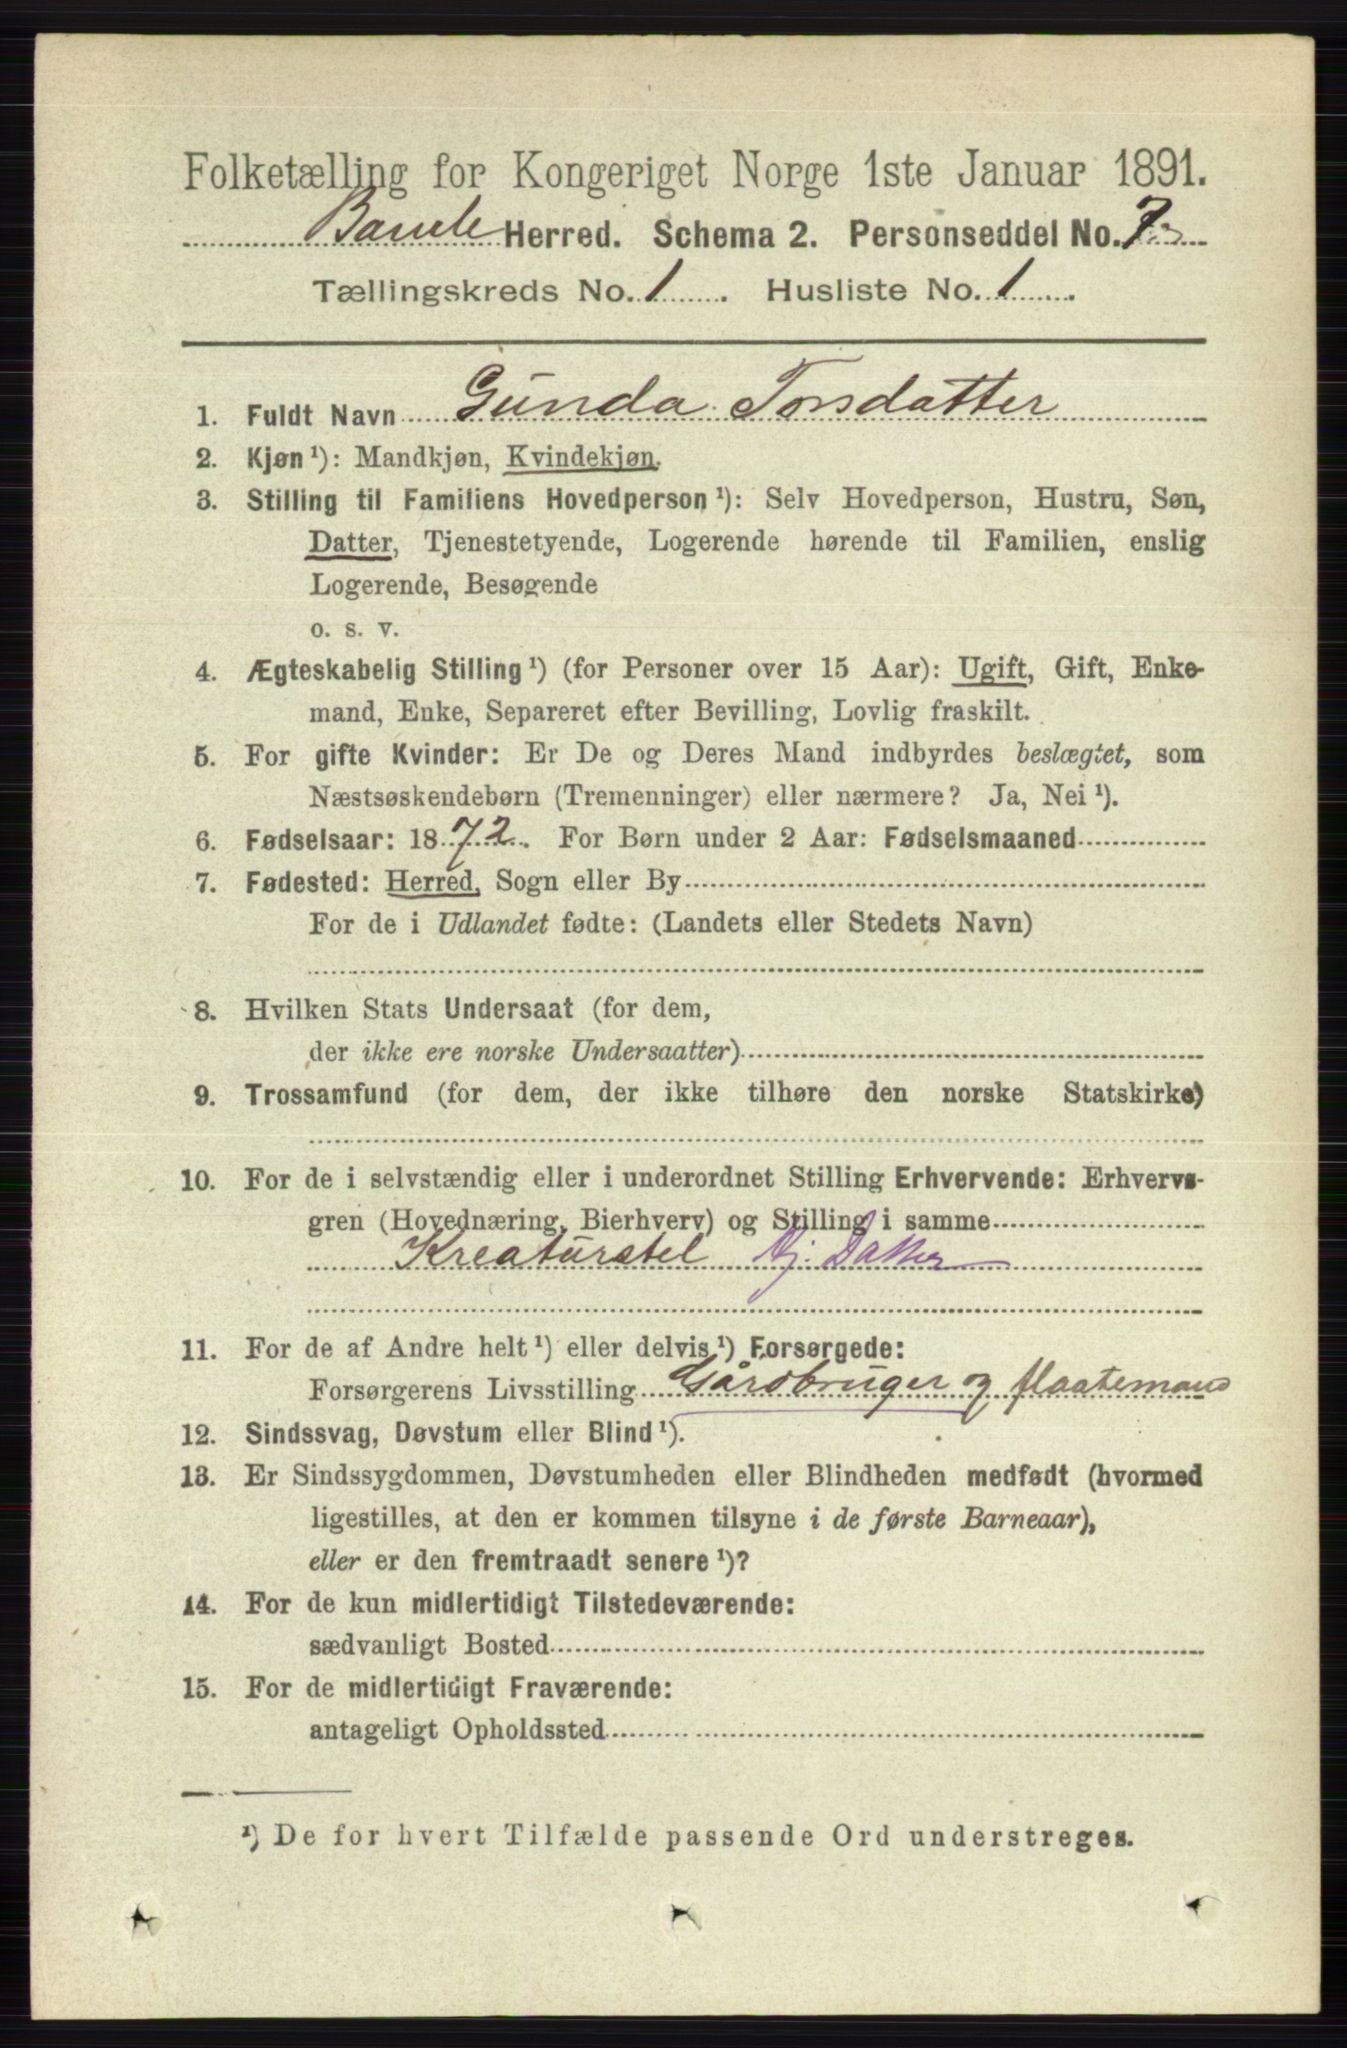 Folketælling for Kongeriget Norge 1ste Januar 1891.
Bamle Herred. Schema 2. Personseddel No. 7
Tællingskreds No. 1. Husliste No. 1.
1. Fuldt Navn Gunda Torsdatter
2. Kjøn¹): Mandkjøn, Kvindekjøn.
3. Stilling til Familiens Hovedperson¹): Selv Hovedperson, Hustru, Søn,
Datter, Tjenestetyende, Logerende hørende til Familien, enslig
Logerende, Besøgende
o. s. v.
4. Ægteskabelig Stilling¹) (for Personer over 15 Aar): Ugift, Gift, Enke-
mand, Enke, Separeret efter Bevilling, Lovlig fraskilt.
5. For gifte Kvinder: Er De og Deres Mand indbyrdes beslægtet, som
Næstsøskendebørn (Tremenninger) eller nærmere? Ja, Nei¹).
6. Fødselsaar: 1872. For Børn under 2 Aar: Fødselsmaaned
7. Fødested: Herred, Sogn eller By
For de i Udlandet fødte: (Landets eller Stedets Navn)
8. Hvilken Stats Undersaat (for dem,
der ikke ere norske Undersaatter)
9. Trossamfund (for dem, der ikke tilhøre den norske Statskirke)
10. For de i selvstændig eller i underordnet Stilling Erhvervende: Erhvervs-
gren (Hovednæring, Bierhverv) og Stilling i samme
Kreaturstel Hj. Datter
11. For de af Andre helt¹) eller delvis¹) Forsørgede:
Forsørgerens Livsstilling Gårdbruger og flaatemand
12. Sindssvag, Døvstum eller Blind¹).
13. Er Sindssygdommen, Døvstumheden eller Blindheden medfødt (hvormed
ligestilles, at den er kommen tilsyne i de første Barneaar),
eller er den fremtraadt senere¹)?
14. For de kun midlertidigt Tilstedeværende:
sædvanligt Bosted
15. For de midlertidigt Fraværende:
antageligt Opholdssted
¹) De for hvert Tilfælde passende Ord understreges.